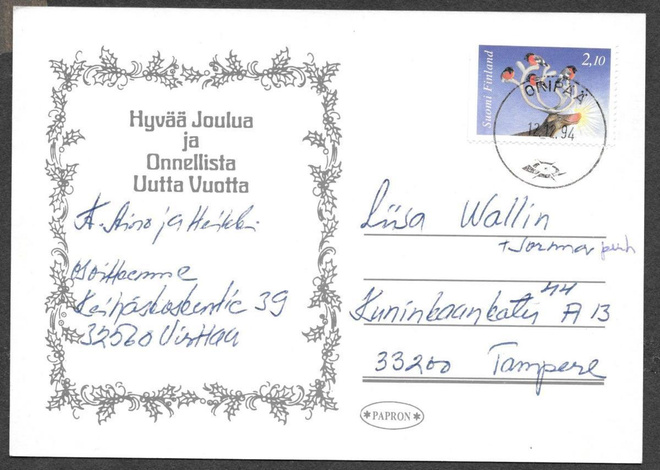 Hyvää Joulua
ja
Onnellista
Uutta Vuotta
T. Aino ja Heikki
osoitteemme
32560 Virttaa
Suomi Finland
2,10
ORIPÄÄ
12.12.94
Liisa Wallin
+Jorma
Kuninkaankatu 44 A 13
33200 Tampere
PAPRON